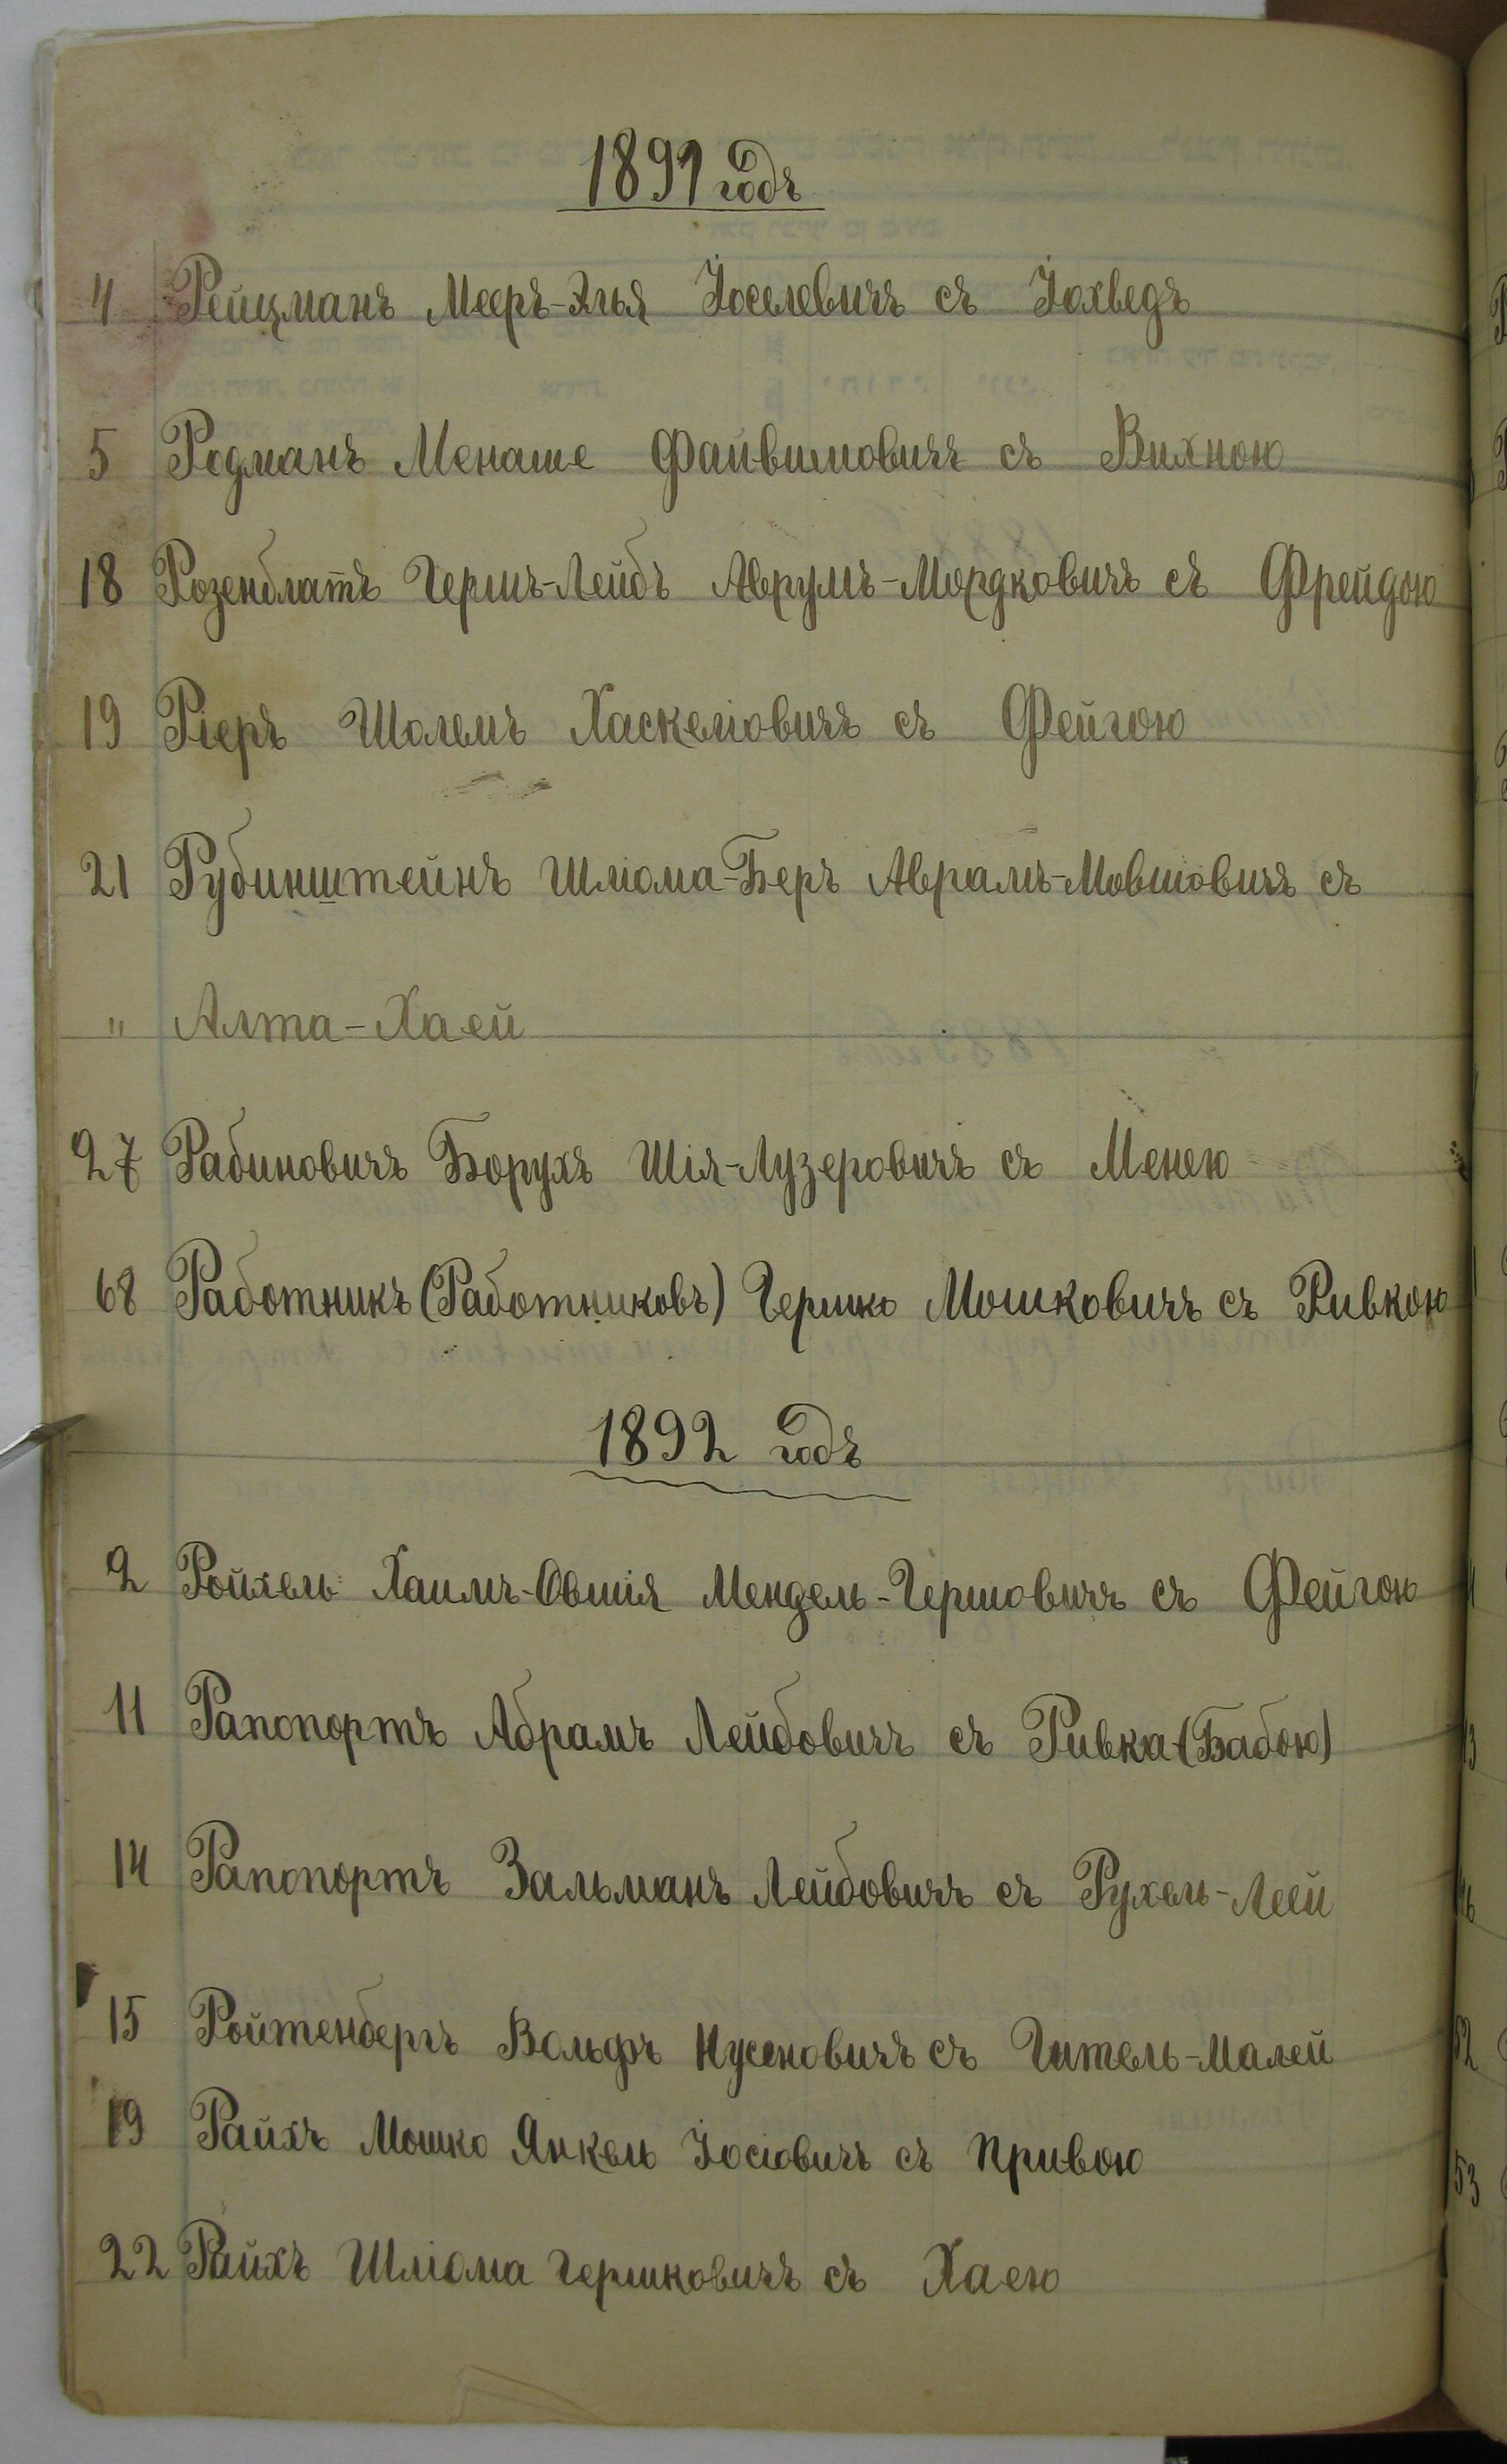 1891 годъ
4 Рейцманъ Мееръ-Элья Іоселевичъ съ Іохведъ
5 Родманъ Менаше Файвишовичъ съ Вихною
18 Розенблатъ Гершъ-Лейбъ Аврумъ-Мордковичъ съ Фрейдою
19 Ріеръ Шолемъ Хаскеліовичъ съ Фейгою
21 Рубинштейнъ Шліома-Беръ Аврамъ-Мовшовичъ съ
" Алта-Хаей
27 Рабиновичъ Борухъ Шія-Лузеровичъ съ Менею
68 Работникъ (Работниковъ) Гершко Мошковичъ съ Ривкою
1892 годъ
2 Ройхель Хаимъ-Овшія Мендель-Гершовичъ съ Фейгою
11 Рапопортъ Абрамъ Лейбовичъ съ Ривка-(Бабою)
14 Рапопортъ Зальманъ Лейбовичъ съ Рухель-Леей
15 Ройтенбергъ Вольфъ Нусеновичъ съ Гитель-Малей
19 Райхъ Мошко Янкель Іосіовичъ съ Привою
22 Райхъ Шліома Гершковичъ съ Хаею